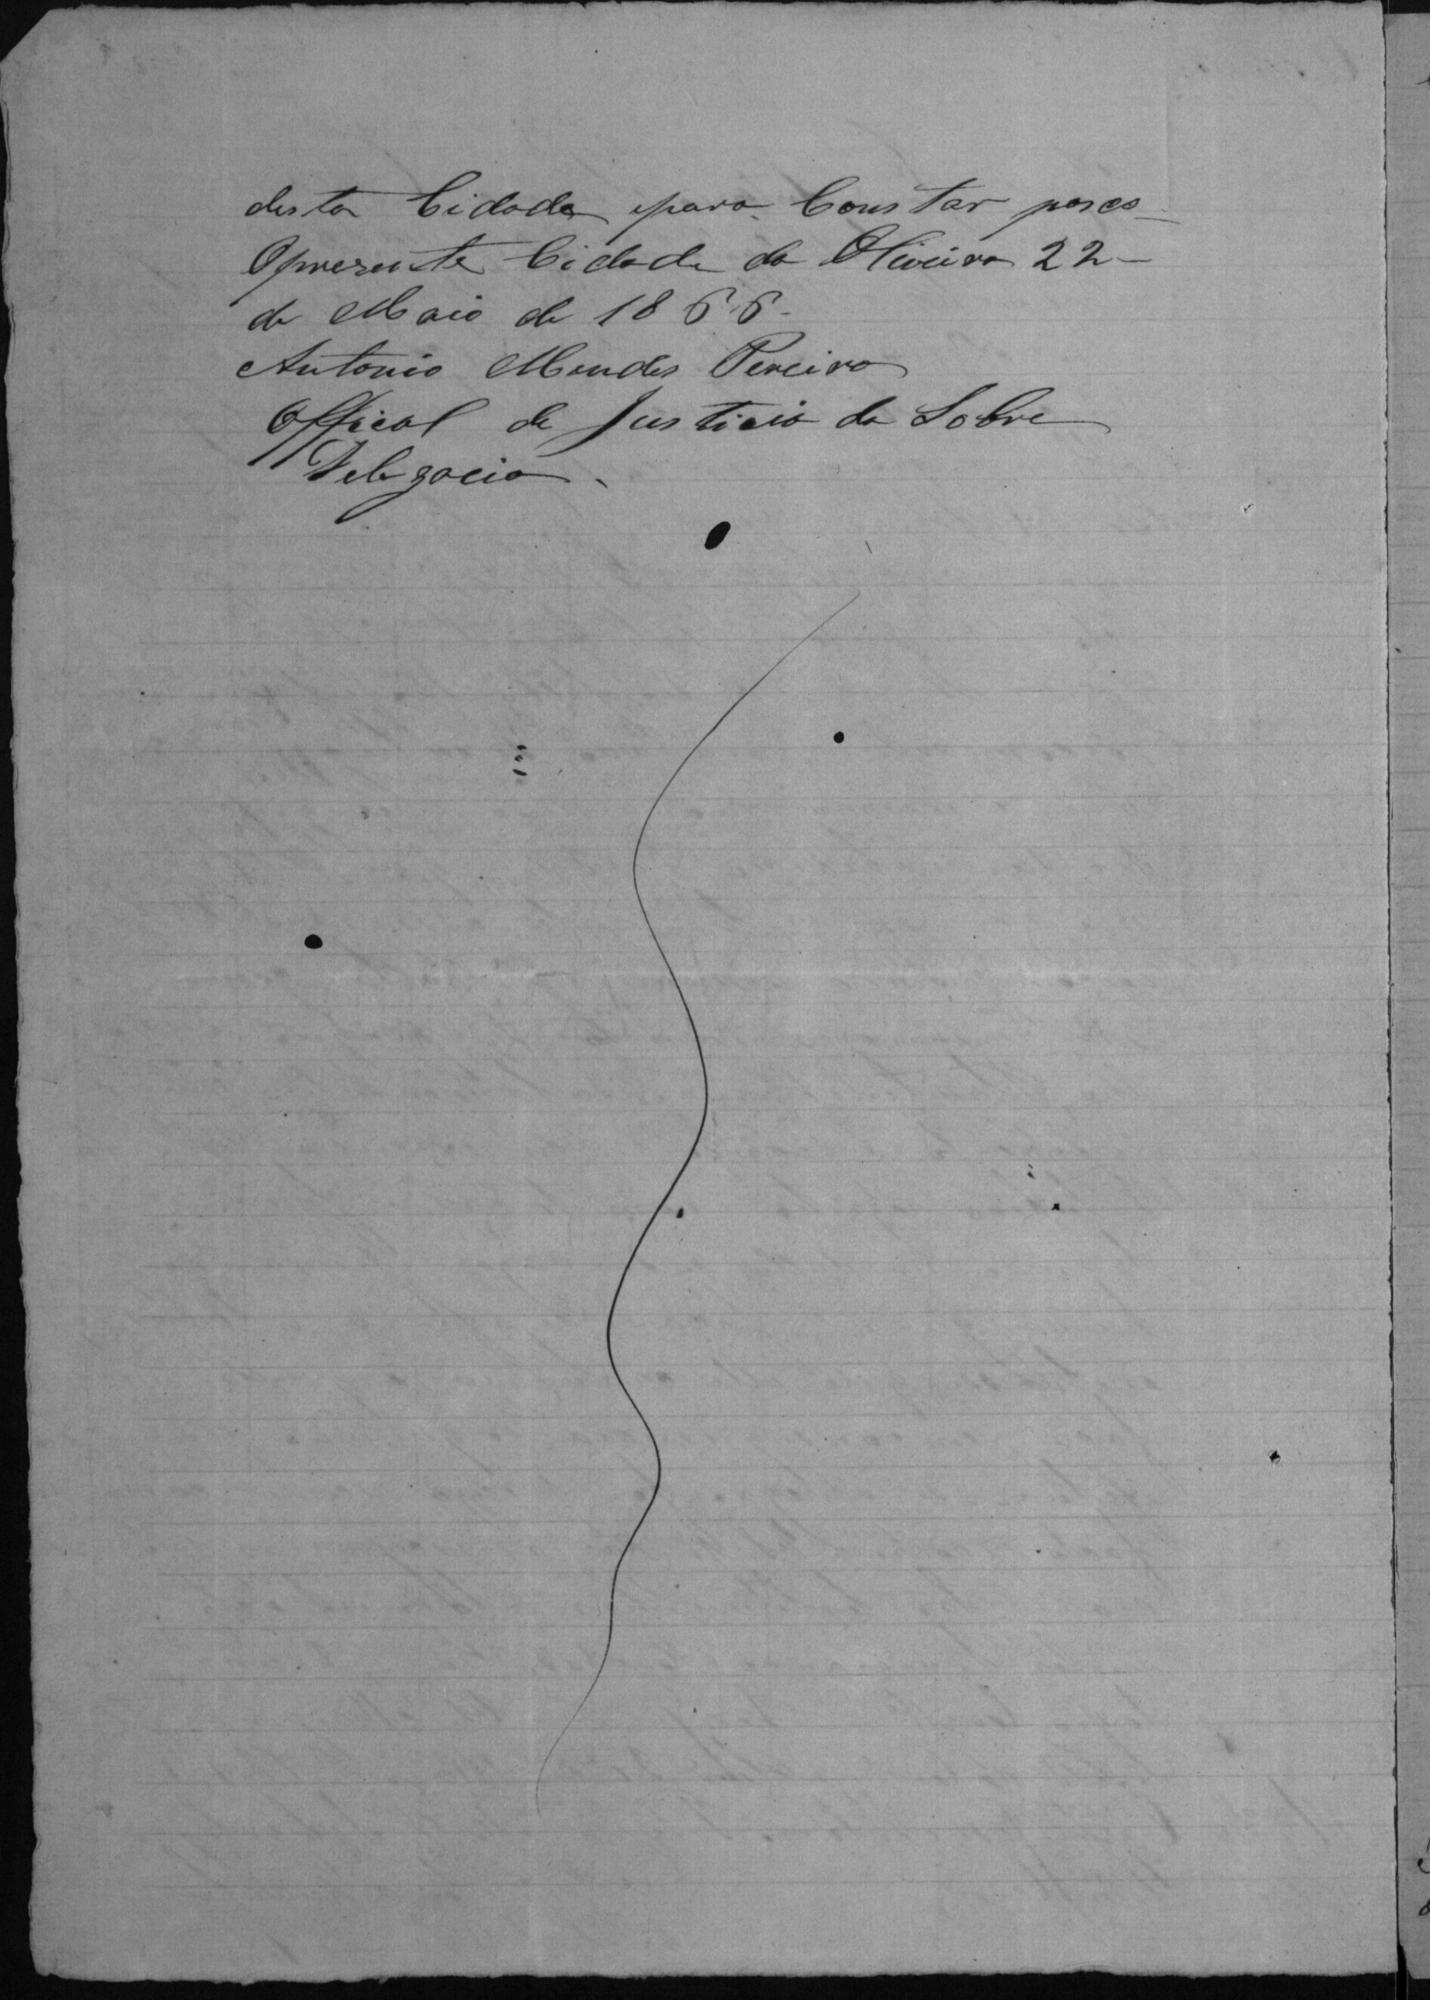 desta Cidade epara Constar paço
Opresente Cidade da Oliveira 22
de Maio de 1866.
Antonio Mendes Pereira
Offical de Justicia da Sobre
Delegacia.